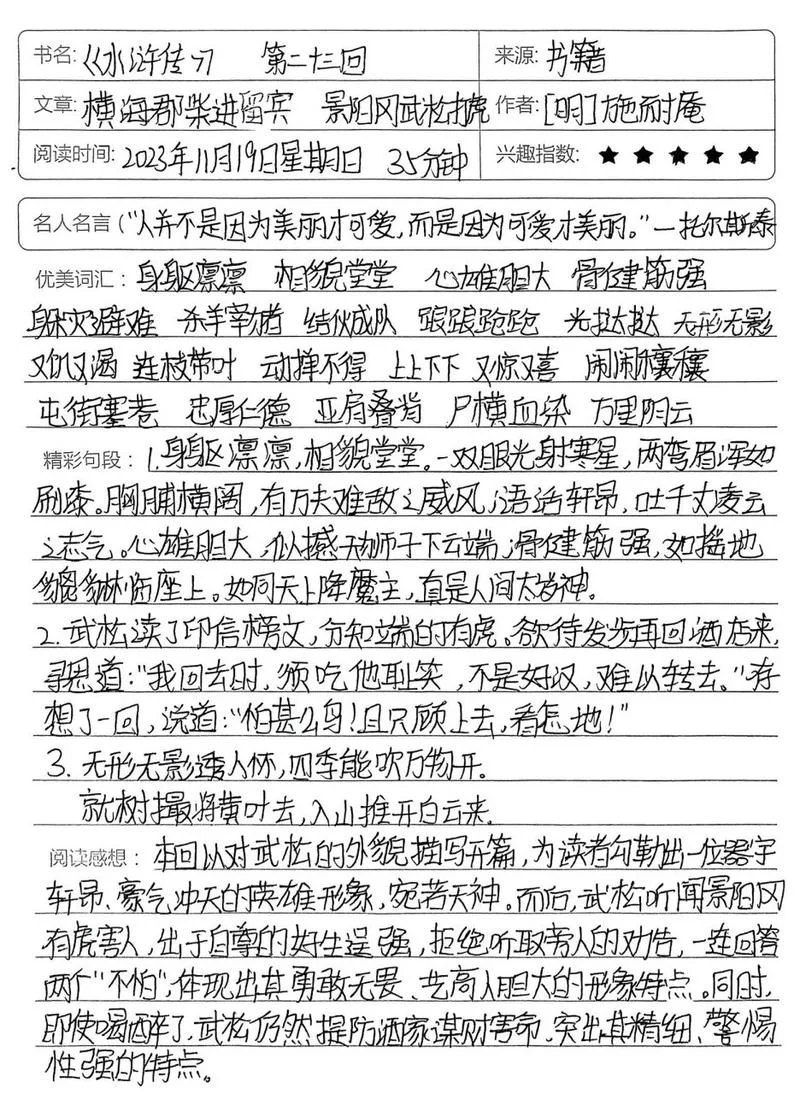 书名:《水浒传》 第二十三回 来源:书籍
文章:横海郡柴进留宾 景阳冈武松打虎 作者:[明]施耐庵
阅读时间:2023年11月19日星期日 35分钟 兴趣指数:★★★★★
名人名言("人并不是因为美丽才可爱,而是因为可爱才美丽。"—托尔斯泰
优美词汇:身躯凛凛 相貌堂堂 心雄胆大 骨健筋强
躲灾避难 杀羊宰猪 结伙成队 踉踉跄跄 光挞挞 无形无影
又饥又渴 连枝带叶 动掸不得 上上下下 又惊又喜 闹闹穰穰
屯街塞巷 忠厚仁德 亚肩叠背 尸横血染 万里阴云
精彩句段:1.身躯凛凛,相貌堂堂。一双眼光射寒星,两弯眉浑如
刷漆。胸脯横阔,有万夫难敌之威风,语话轩昂,吐千丈凌云
之志气。心雄胆大,似撼天狮子下云端,骨健筋强,如摇地
貔貅临座上。如同天上降魔主,真是人间太岁神。
2.武松读了印信榜文,方知端的有虎。欲待发步再回酒店来,
寻思道:"我回去时,须吃他耻笑,不是好汉,难以转去。"存
想了一回,说道:"怕甚么鸟!且只顾上去,看怎地!"
3.无形无影透人怀,四季能吹万物开。
就树撮将黄叶去,入山推开白云来.
阅读感想:本回以对武松的外貌描写开篇,为读者勾勒出一位器宇
轩昂、豪气冲天的英雄形象,宛若天神。而后,武松听闻景阳冈
有虎害人,出于自尊的好生逞强,拒绝听取旁人的劝告,一连回答
两个"不怕",体现出其勇敢无畏、艺高人胆大的形象特点。同时,
即使喝醉了,武松仍然提防酒家谋财害命,突出其精细、警惕
性强的特点。